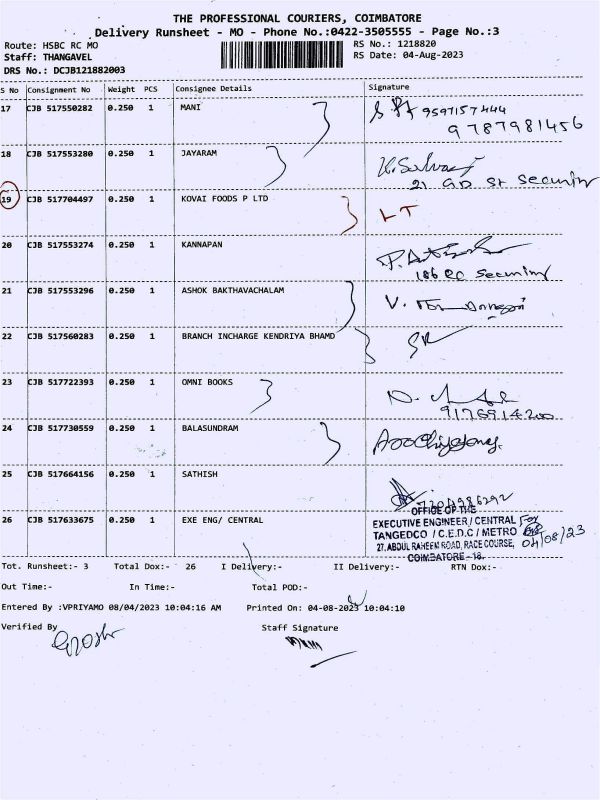 THE PROFESSIONAL COURIERS, COIMBATORE
Delivery Runsheet - MO - Phone No.:0422-3505555 - Page No.:3
Route: HSBC RC MO RS No.: 1218820
Staff: THANGAVEL RS Date: 04-Aug-2023
DRS No.: DCJB121882003
S No Consignment No Weight PCS Consignee Details Signature
17 CJB 517550282 0.250 1 MANI 9597157444
9787981456
18 CJB 517553280 0.250 1 JAYARAM
21 GD St Security
19 CJB 517704497 0.250 1 KOVAI FOODS P LTD LT
20 CJB 517553274 0.250 1 KANNAPAN
Security
21 CJB 517553296 0.250 1 ASHOK BAKTHAVACHALAM
22 CJB 517560283 0.250 1 BRANCH INCHARGE KENDRIYA BHAMD
23 CJB 517722393 0.250 1 OMNI BOOKS
9176914200
24 CJB 517730559 0.250 1 BALASUNDRAM
25 CJB 517664156 0.250 1 SATHISH
26 CJB 517633675 0.250 1 EXE ENG/ CENTRAL
OFFICE OF THE
EXECUTIVE ENGINEER / CENTRAL For
TANGEDCO / C.E.D.C / METRO
27, ABDUL RAHEEM ROAD, RACE COURSE, 04/08/23
COIMBATORE - 18.
Tot. Runsheet:- 3 Total Dox:- 26 I Delivery:- II Delivery:- RTN Dox:-
Out Time:- In Time:- Total POD:-
Entered By :VPRIYAMO 08/04/2023 10:04:16 AM Printed On: 04-08-2023 10:04:10
Verified By Staff Signature